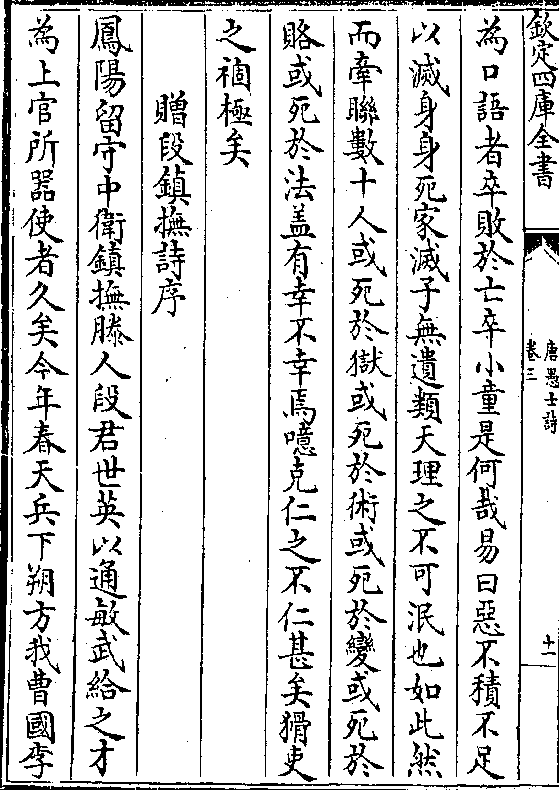 欽定四庫全書
唐愚士詩
卷三
十一
為口語者卒敗於亡卒小童是何哉易曰惡不積不足
以滅身身死家滅子無遺類天理之不可泯也如此然
而牽聯數十人或死於獄或死於術或死於變或死於
賂或死於法盖有幸不幸焉噫克仁之不仁甚矣猾吏
之禍極矣
贈段鎮撫詩序
鳳陽留守中衛鎮撫滕人段君世英以通敏武給之才
為上官所器使者久矣今年春天兵下朔方我曹國李